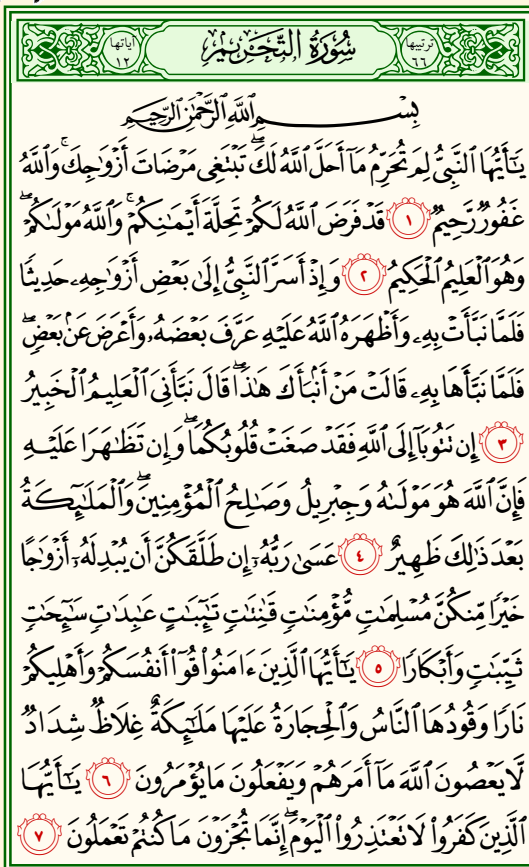 ترتيبها ٦٦ سُورَةُ التَّحْرِيمِ آياتها ١٢
بِسْمِ ٱللَّهِ ٱلرَّحْمَٰنِ ٱلرَّحِيمِ
يَٰٓأَيُّهَا ٱلنَّبِىُّ لِمَ تُحَرِّمُ مَآ أَحَلَّ ٱللَّهُ لَكَ ۖ تَبْتَغِى مَرْضَاتَ أَزْوَٰجِكَ ۚ وَٱللَّهُ
غَفُورٌ رَّحِيمٌ ١ قَدْ فَرَضَ ٱللَّهُ لَكُمْ تَحِلَّةَ أَيْمَٰنِكُمْ ۚ وَٱللَّهُ مَوْلَىٰكُمْ ۖ
وَهُوَ ٱلْعَلِيمُ ٱلْحَكِيمُ ٢ وَإِذْ أَسَرَّ ٱلنَّبِىُّ إِلَىٰ بَعْضِ أَزْوَٰجِهِۦ حَدِيثًا
فَلَمَّا نَبَّأَتْ بِهِۦ وَأَظْهَرَهُ ٱللَّهُ عَلَيْهِ عَرَّفَ بَعْضَهُۥ وَأَعْرَضَ عَنۢ بَعْضٍ ۖ
فَلَمَّا نَبَّأَهَا بِهِۦ قَالَتْ مَنْ أَنۢبَأَكَ هَٰذَا ۖ قَالَ نَبَّأَنِىَ ٱلْعَلِيمُ ٱلْخَبِيرُ
٣ إِن تَتُوبَآ إِلَى ٱللَّهِ فَقَدْ صَغَتْ قُلُوبُكُمَا ۖ وَإِن تَظَٰهَرَا عَلَيْهِ
فَإِنَّ ٱللَّهَ هُوَ مَوْلَىٰهُ وَجِبْرِيلُ وَصَٰلِحُ ٱلْمُؤْمِنِينَ ۖ وَٱلْمَلَٰٓئِكَةُ
بَعْدَ ذَٰلِكَ ظَهِيرٌ ٤ عَسَىٰ رَبُّهُۥٓ إِن طَلَّقَكُنَّ أَن يُبْدِلَهُۥٓ أَزْوَٰجًا
خَيْرًا مِّنكُنَّ مُسْلِمَٰتٍ مُّؤْمِنَٰتٍ قَٰنِتَٰتٍ تَٰٓئِبَٰتٍ عَٰبِدَٰتٍ سَٰٓئِحَٰتٍ
ثَيِّبَٰتٍ وَأَبْكَارًا ٥ يَٰٓأَيُّهَا ٱلَّذِينَ ءَامَنُوا۟ قُوٓا۟ أَنفُسَكُمْ وَأَهْلِيكُمْ
نَارًا وَقُودُهَا ٱلنَّاسُ وَٱلْحِجَارَةُ عَلَيْهَا مَلَٰٓئِكَةٌ غِلَاظٌ شِدَادٌ
لَّا يَعْصُونَ ٱللَّهَ مَآ أَمَرَهُمْ وَيَفْعَلُونَ مَا يُؤْمَرُونَ ٦ يَٰٓأَيُّهَا
ٱلَّذِينَ كَفَرُوا۟ لَا تَعْتَذِرُوا۟ ٱلْيَوْمَ ۖ إِنَّمَا تُجْزَوْنَ مَا كُنتُمْ تَعْمَلُونَ ٧